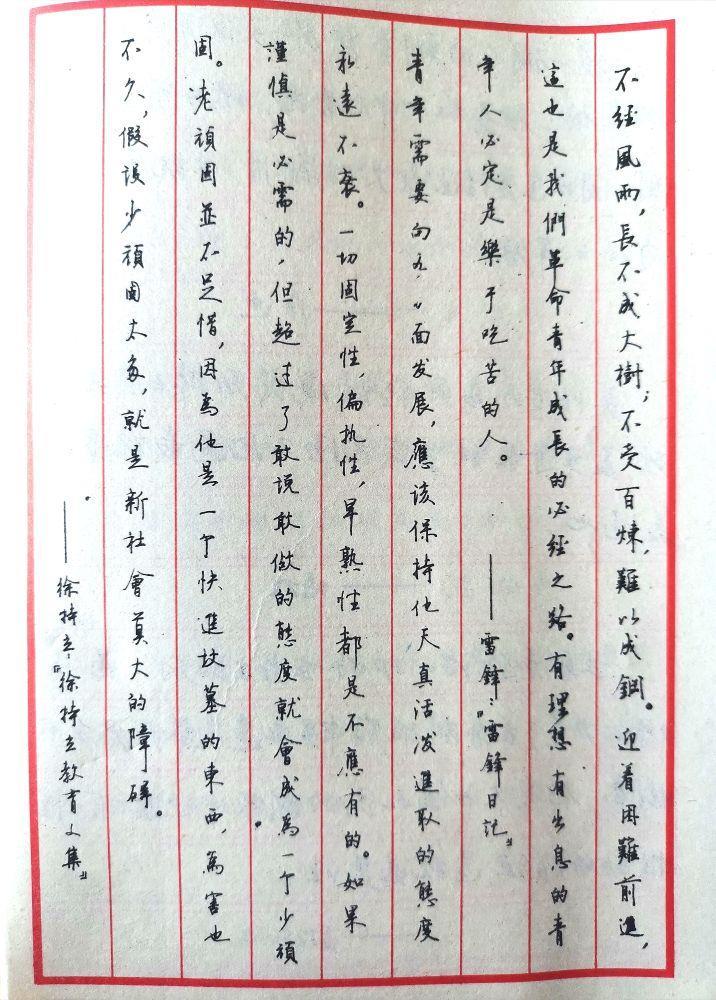 不經風雨，長不成大樹；不受百煉，難以成鋼。迎着困難前進，
這也是我們革命青年成長的必經之路。有理想有出息的青
年人必定是樂于吃苦的人。
——雷鋒：『雷鋒日記』
青年需要向各方面发展，應该保持他天真活泼進取的態度
永遠不衰。一切固定性，偏执性，早熟性都是不應有的。如果
謹慎是必需的，但超过了敢説敢做的態度就會成為一个少頑
固。老頑固並不足惜，因為他是一个快進坟墓的東西，為害也
不久，假設少頑固太多，就是新社會莫大的障碍。
——徐持立：『徐持立教育文集』